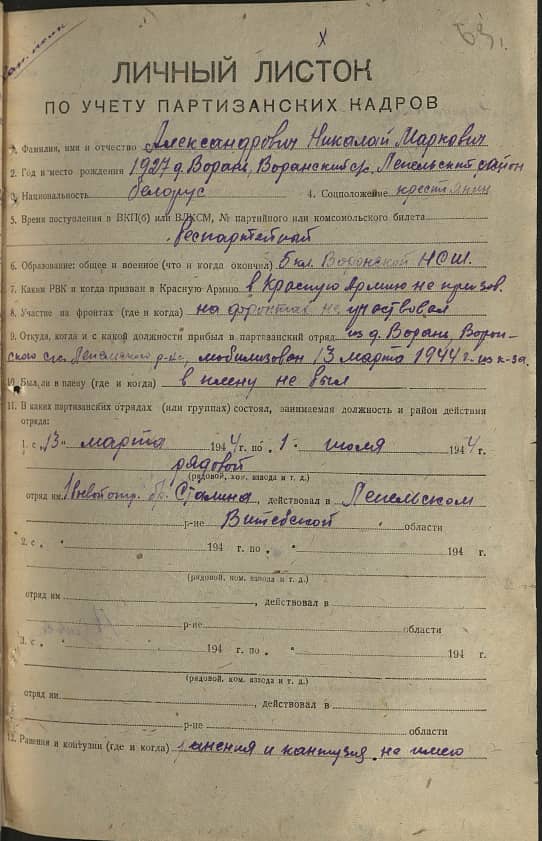 63.
ЛИЧНЫЙ ЛИСТОК
ПО УЧЕТУ ПАРТИЗАНСКИХ КАДРОВ
1. Фамилия, имя и отчество Александрович Николай Маркович
2. Год и место рождения 1927 д.Ворань, Воранский с/с, Лепельский район
3. Национальность белорус 4. Соцположение крестьянин
5. Время поступления в ВКП(б) или ВЛКСМ, № партийного или комсомольского билета
Беспартейный
6. Образование: общее и военное (что и когда окончил) 5 кл. Воронской НСШ.
7. Каким РВК и когда призван в Красную Армию в Красную Армию не призов.
8. Участие на фронтах (где и когда) на фронтах не участвовал
9. Откуда, когда и с какой должности прибыл в партизанский отряд из д. Ворань, Ворон-
ского с/с. Лепельского р-на, мобилизован 13 марта 1944 г. из к-за.
10. Был, ли в плену (где и когда) в плену не был
11. В каких партизанских отрядах (или группах) состоял, занимаемая должность и район действия
отряда:
1. с „13" марта 1944 г. по „1" июля 1944 г.
рядовой
(рядовой, ком. взвода и т. д.)
отряд им. 1 боевой отр. бр. Сталина, действовал в Лепельском
р-не Витебской области
2. с „ " 194 г. по „ " 194 г.
(рядовой, ком. взвода и т. д.)
отряд им , действовал в
р-не области
3. с „ " 194 г. по „ " 194 г.
(рядовой, ком. взвода и т. д.)
отряд им. , действовал в
р-не области
12. Ранения и контузии (где и когда) ранения и кантузия не имею